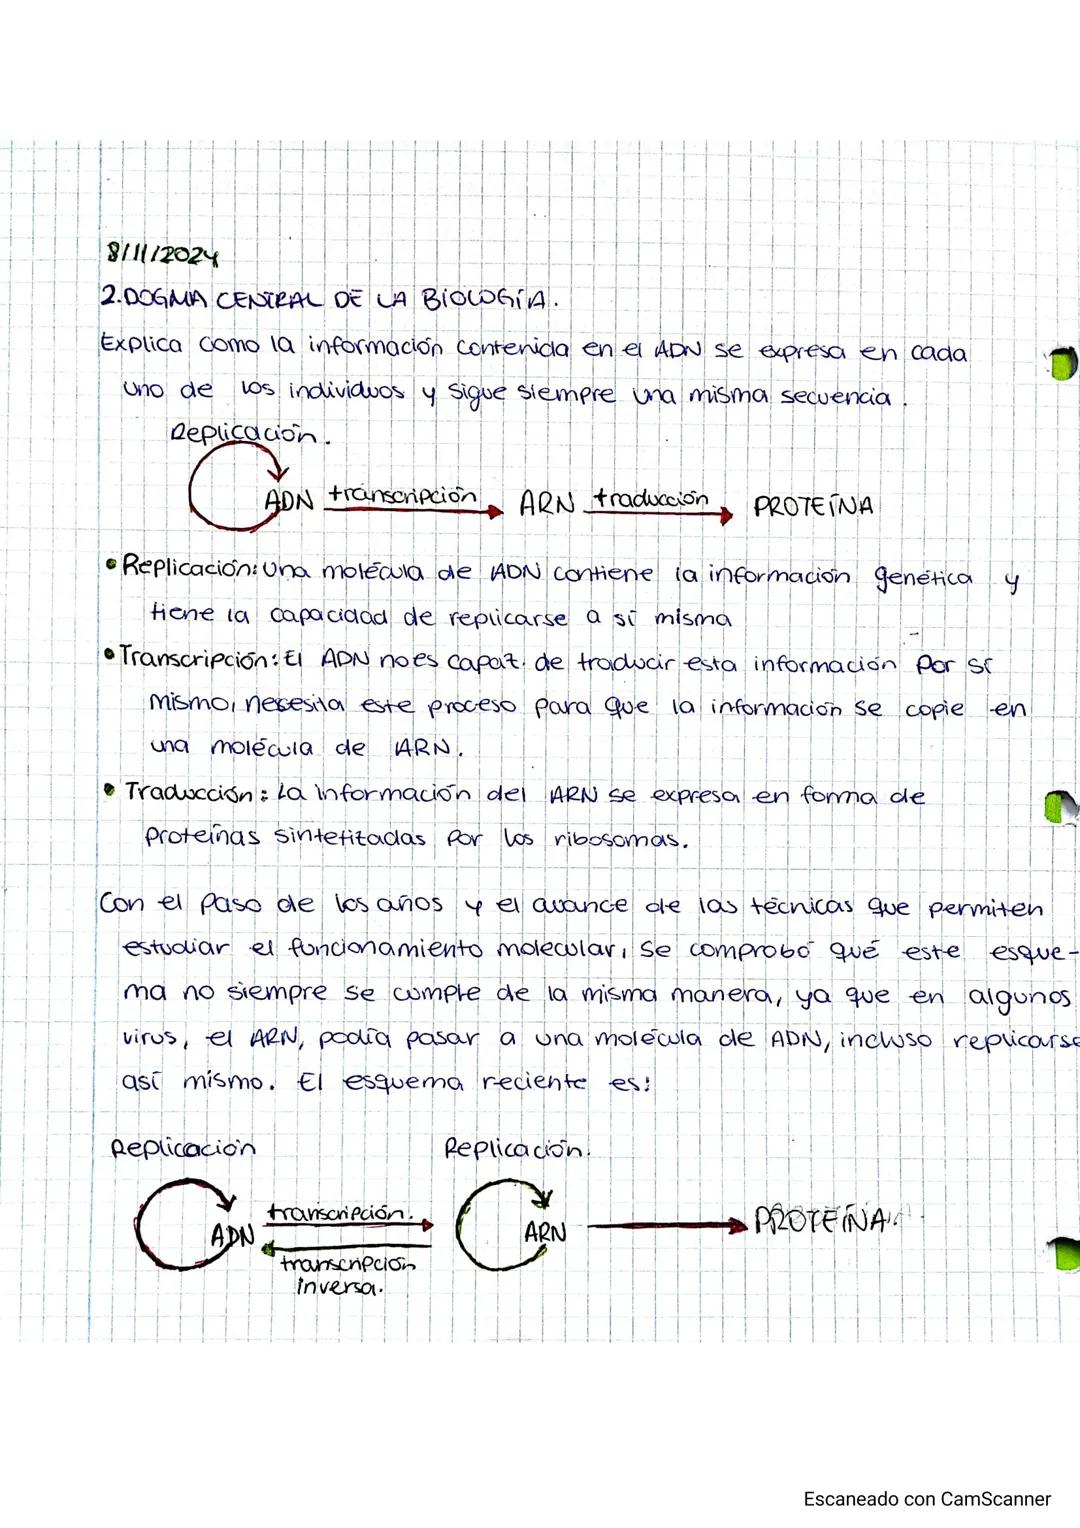 8/11/2024
2.DOGMA CENTRAL DE LA BIOLOGÍA.
Explica como la información contenida en el ADN se expresa en cada
uno de los individuos y sigue siempre una misma secuencia.
Replicación.
ADN transcripción ARN traducción PROTEÍNA
• Replicación: Una molécula de ADN contiene la información genética y
tiene la capacidad de replicarse a sí misma
• Transcripción: El ADN no es capaz de traducir esta información por sí
mismo, necesita este proceso para que la información se copie en
una molécula de ARN.
• Traducción: La información del ARN se expresa en forma de
proteínas sintetizadas por los ribosomas.
Con el paso de los años y el avance de las técnicas que permiten
estudiar el funcionamiento molecular, se comprobó qué este esque-
ma no siempre se cumple de la misma manera, ya que en algunos
virus, el ARN, podía pasar a una molécula de ADN, incluso replicarse
así mismo. El esquema reciente es:
Replicación Replicación.
ADN transcripción. ARN PROTEÍNA.
transcripción
inversa.
Escaneado con CamScanner